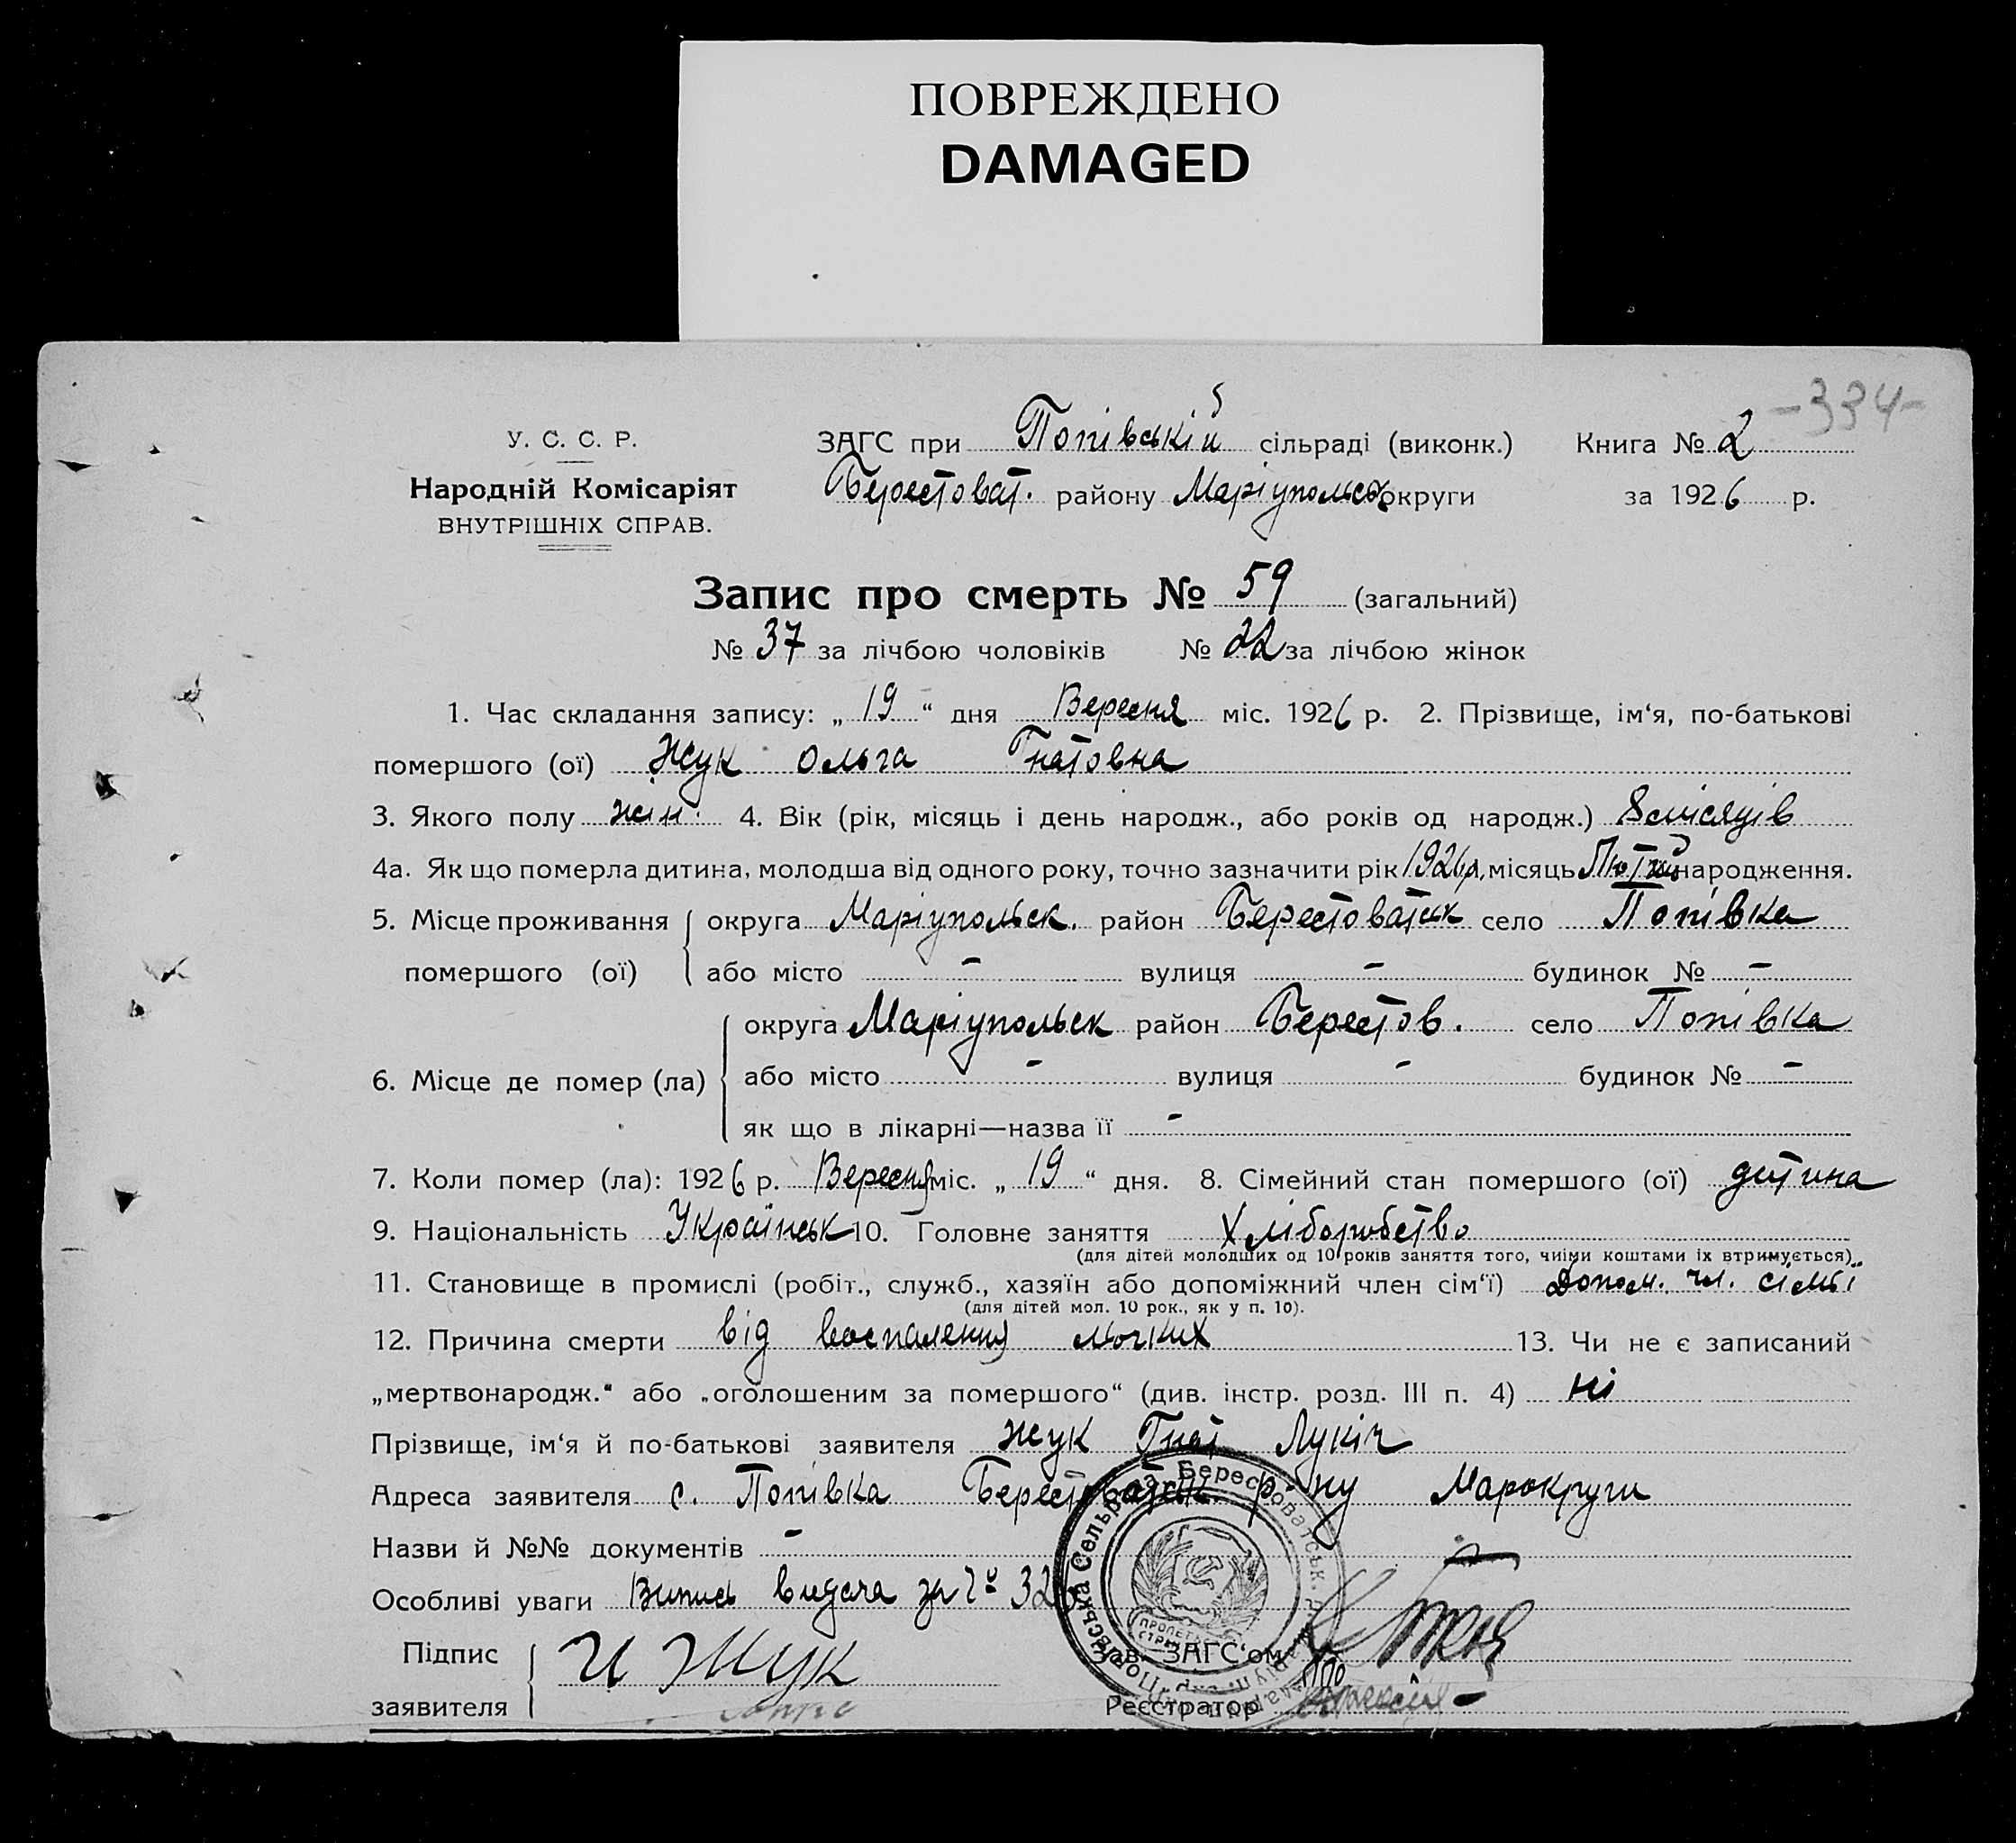 ПОВРЕЖДЕНО
DAMAGED
-334-
У. С. С. Р.
Народній Комісаріят
ВНУТРІШНІХ СПРАВ.
ЗАГС при Попівській сільраді (виконк.) Книга № 2
Берестоват. району Маріупольськ округи за 1926 р.
Запис про смерть № 59 (загальний)
№ 37 за лічбою чоловіків № 22 за лічбою жінок
1. Час складання запису: „ 19 “ дня Вересня міс. 1926 р. 2. Прізвище, ім‘я, по-батькові
помершого (ої) Жук Ольга Гнатовна
3. Якого полу жін. 4. Вік (рік, місяць і день народж., або років од народж.) 8 місяців
4а. Як що померла дитина, молодша від одного року, точно зазначити рік 1926 р, місяць Лютий народження.
5. Місце проживання округа Маріупольск. район Берестоватськ село Попівка
помершого (ої) або місто - вулиця - будинок № -
округа Маріупольск район Берестов. село Попівка
6. Місце де помер (ла) або місто - вулиця - будинок № -
як що в лікарні—назва її -
7. Коли помер (ла): 1926 р. Вересня міс. „ 19 “ дня. 8. Сімейний стан помершого (ої) дитина
9. Національність Українськ 10. Головне заняття Хліборобство
(для дітей молодших од 10 років заняття того, чиїми коштами їх втримується)
11. Становище в промислі (робіт., служб., хазяїн або допоміжний член сім‘ї) допом. чл. сімьї
(для дітей мол. 10 рок., як у п. 10).
12. Причина смерти від воспаления 13. Чи не є записаний
„мертвонародж.“ або „оголошеним за помершого“ (див. інстр. розд. III п. 4) ні
Прізвище, ім‘я й по-батькові заявителя Жук Гнат Лукіч
Адреса заявителя с. Попівка Берестоватськ. р-ну Марокруги
Назви й №№ документів -
Особливі уваги Випись видача за
Підпис И Жук Зав. ЗАГС‘ом
заявителя Реєстратор